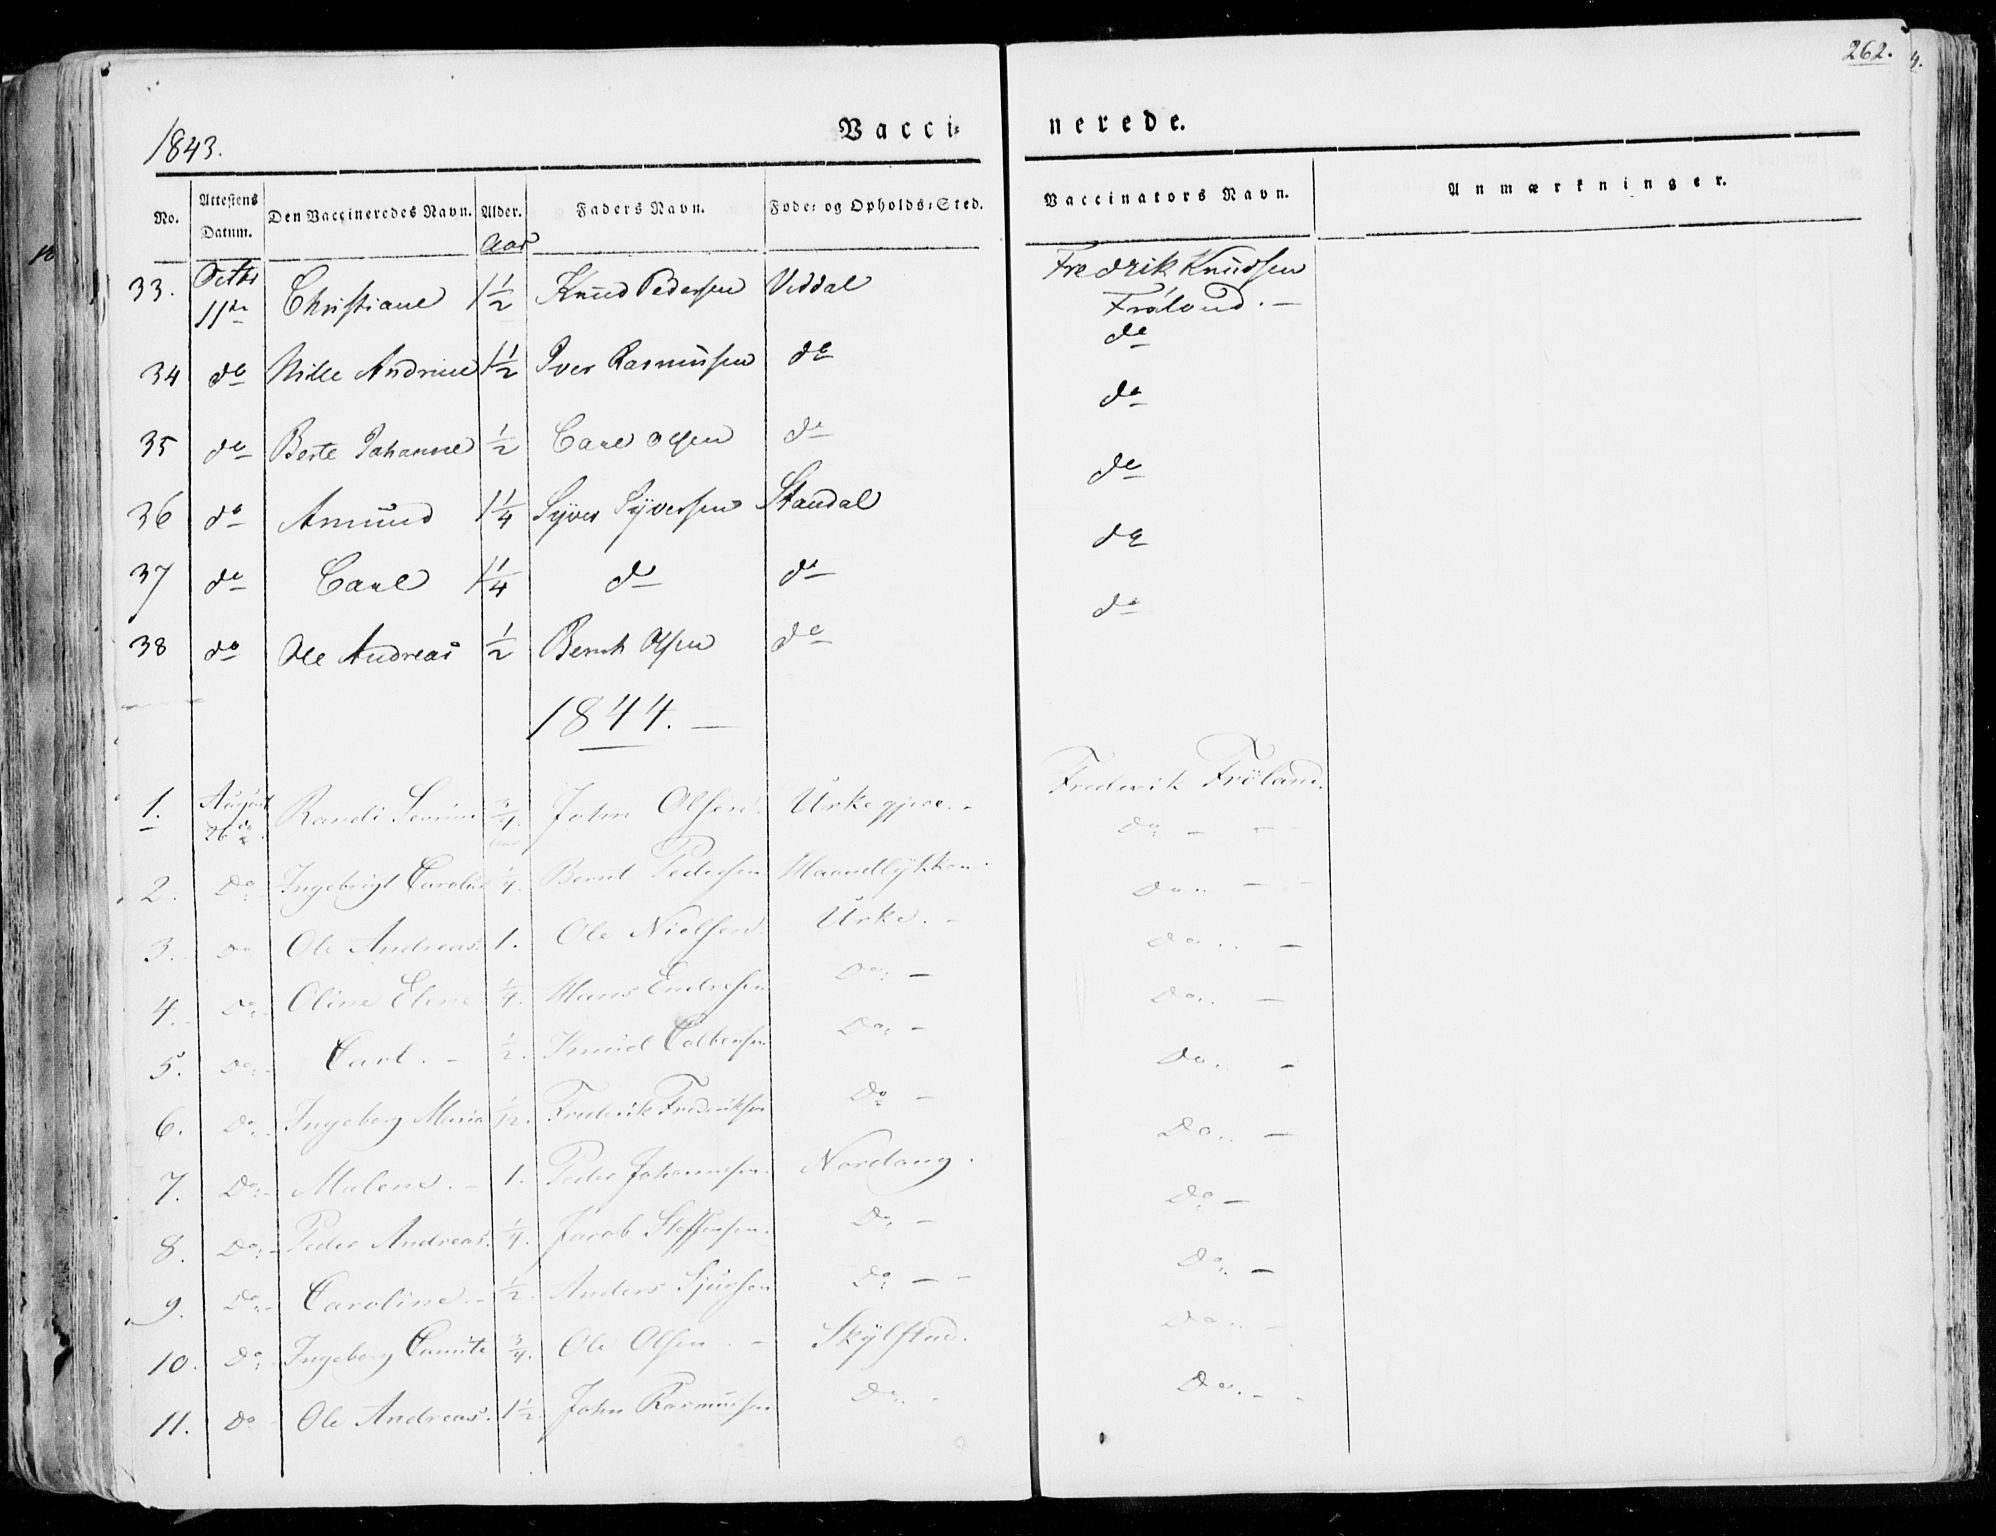 262.
1843.
Vacci= nerede.
No. Attestens Datum. Den Vaccineredes Navn. Alder. Faders Navn. Føde= og Opholds=Sted. Vaccinators Navn. Anmærkninger.
Aar
33. Octbr 11te Christiane 1 1/2 Knud Pedersen Viddal Fredrik Knudsen Frøland. —
34 do Nille Andrine 1 1/2 Iver Rasmussen do do
35 do Berte Johanne 1/2 Carl Olsen do do
36 do Amund 1 1/4 Syver Syversen Standal do
37 do Carl 1 1/4 do do do
38 do Ole Andreas 1/2 Bernt Olsen do do
1844. —
1. August 26de Randi Severine 3/4 John Olsen Urkegjære. - Frederik Frøland.
2. Do Ingeborg Caroline 1/4. Bernt Pedersen Maandlykken. Do - -
3. Do Ole Andreas. 1. Ole Nielsen. Urke. - Do.. - -
4. Do Oline Elene 1/4. Hans Endresen Do: - Do.. -
5. Do: Carl. - 1/2. Knud Colbensen Do: - Do.. -
6. Do: Ingeborg Maria 1/2. Frederik Frederiksen Do - Do.. -
7. Do: Malene. - 1. Peder Johannesen. Nordang. Do.. -
8. Do: Peder Andreas. 1/4. Jacob Steffensen. Do: - Do -
9. Do: Caroline. - 1/2. Anders Sjursen Do: - - Do.. -
10. Do: Ingeborg 3/4. Ole Olsen. - Skylstad. Do.. -
11. Do Ole Andreas. 1 1/2 John Rasmussen Do.. - Do.. - -